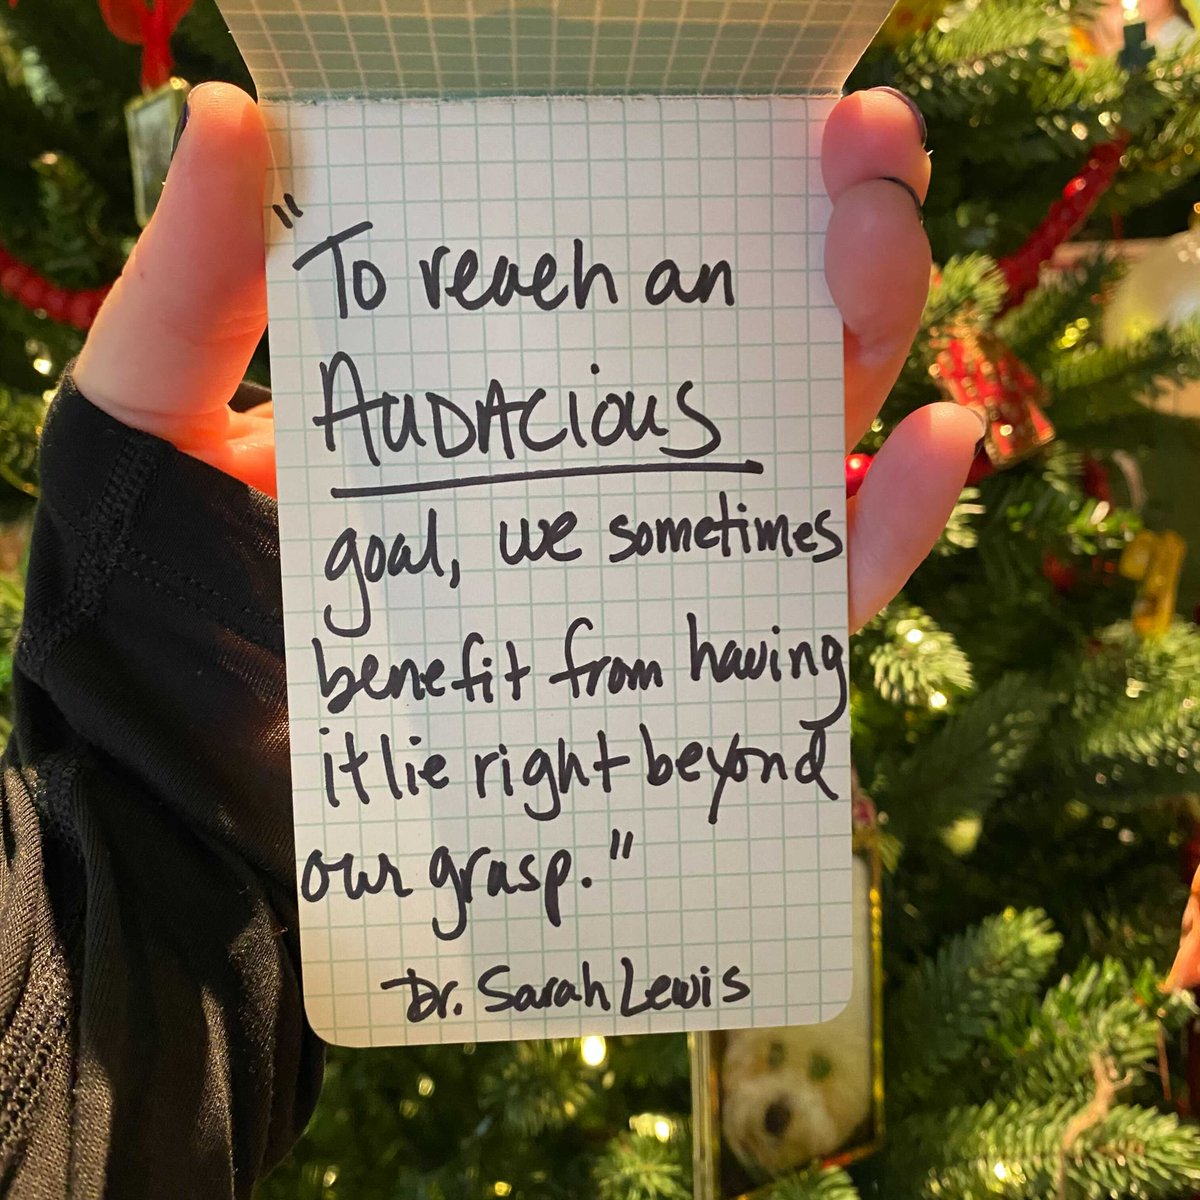 "To reach an
AUDACious
goal, we sometimes
benefit from having
it lie right beyond
our grasp."
Dr. Sarah Lewis